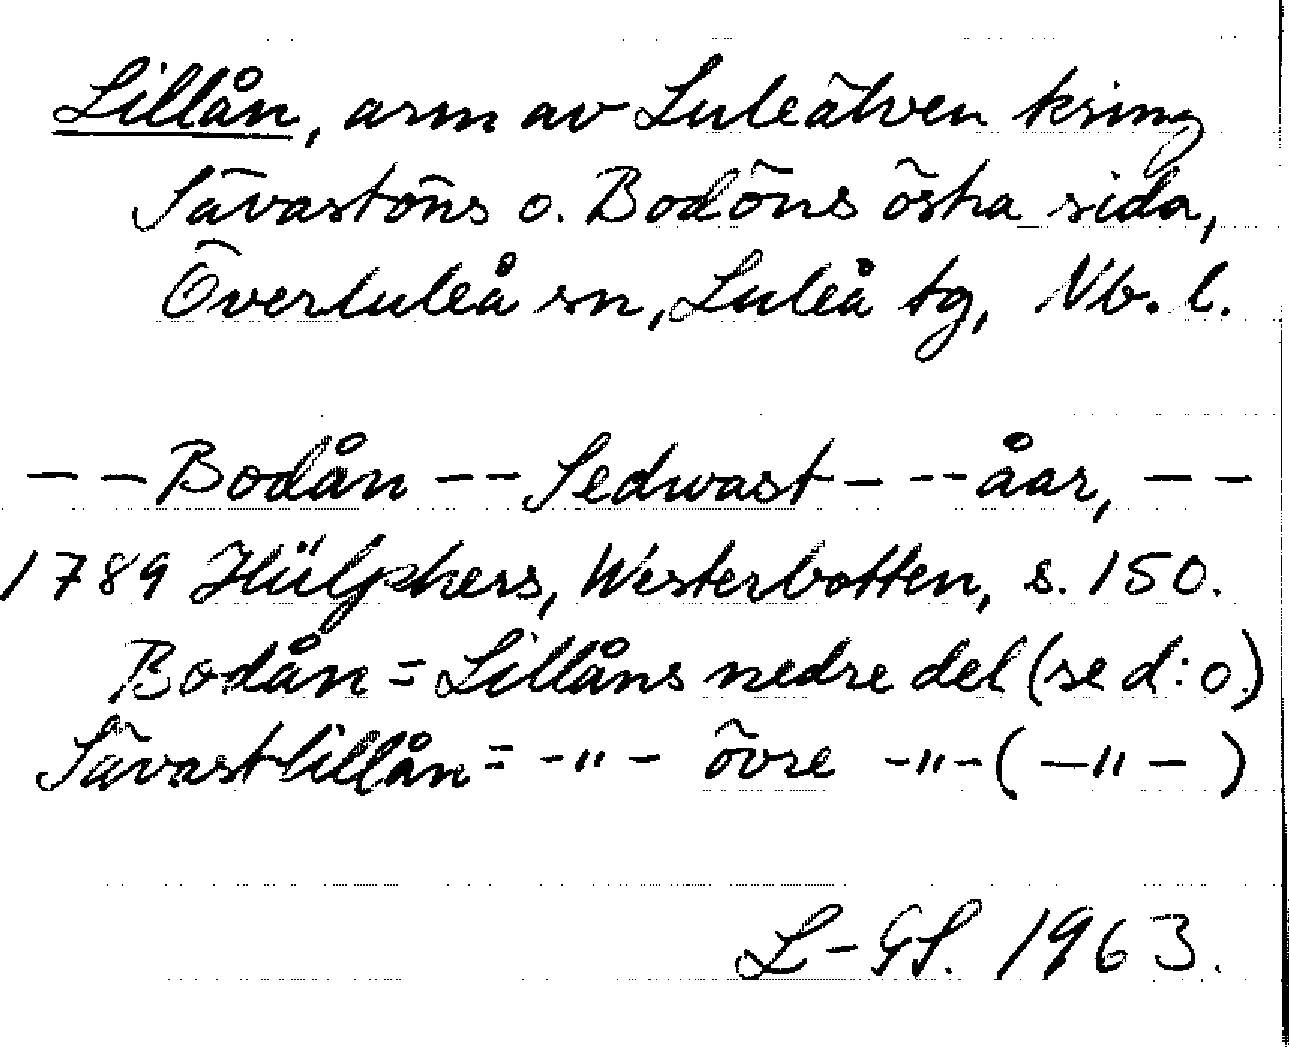 Lillån, arm av Luleälven kring
Sävastöns o. Bodöns östra sida,
Överluleå sn, Luleå tg, Nb. l.
– – Bodån – – Sedwast – – – åar, – –
1789 Hülphers, Westerbotten, s. 150.
Bodån = Lillåns nedre del (se d:o.)
Sävastlillån = – " – övre – " – ( – " – )
L-GS. 1963.